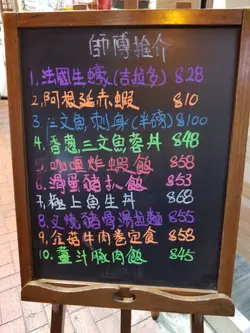 師傅推介
1,法國生蠔(吉拉多) $28
2,阿根廷赤蝦 $10
3,三文魚刺身(半磅) $100
4,香蔥三文魚蓉丼 $48
5,咖喱炸蝦飯 $58
6,滑蛋豬扒飯 $53
7,極上魚生丼 $68
8,叉燒豬骨湯拉麵 $55
9,金菇牛肉卷定食 $58
10,薑汁豚肉飯 $45